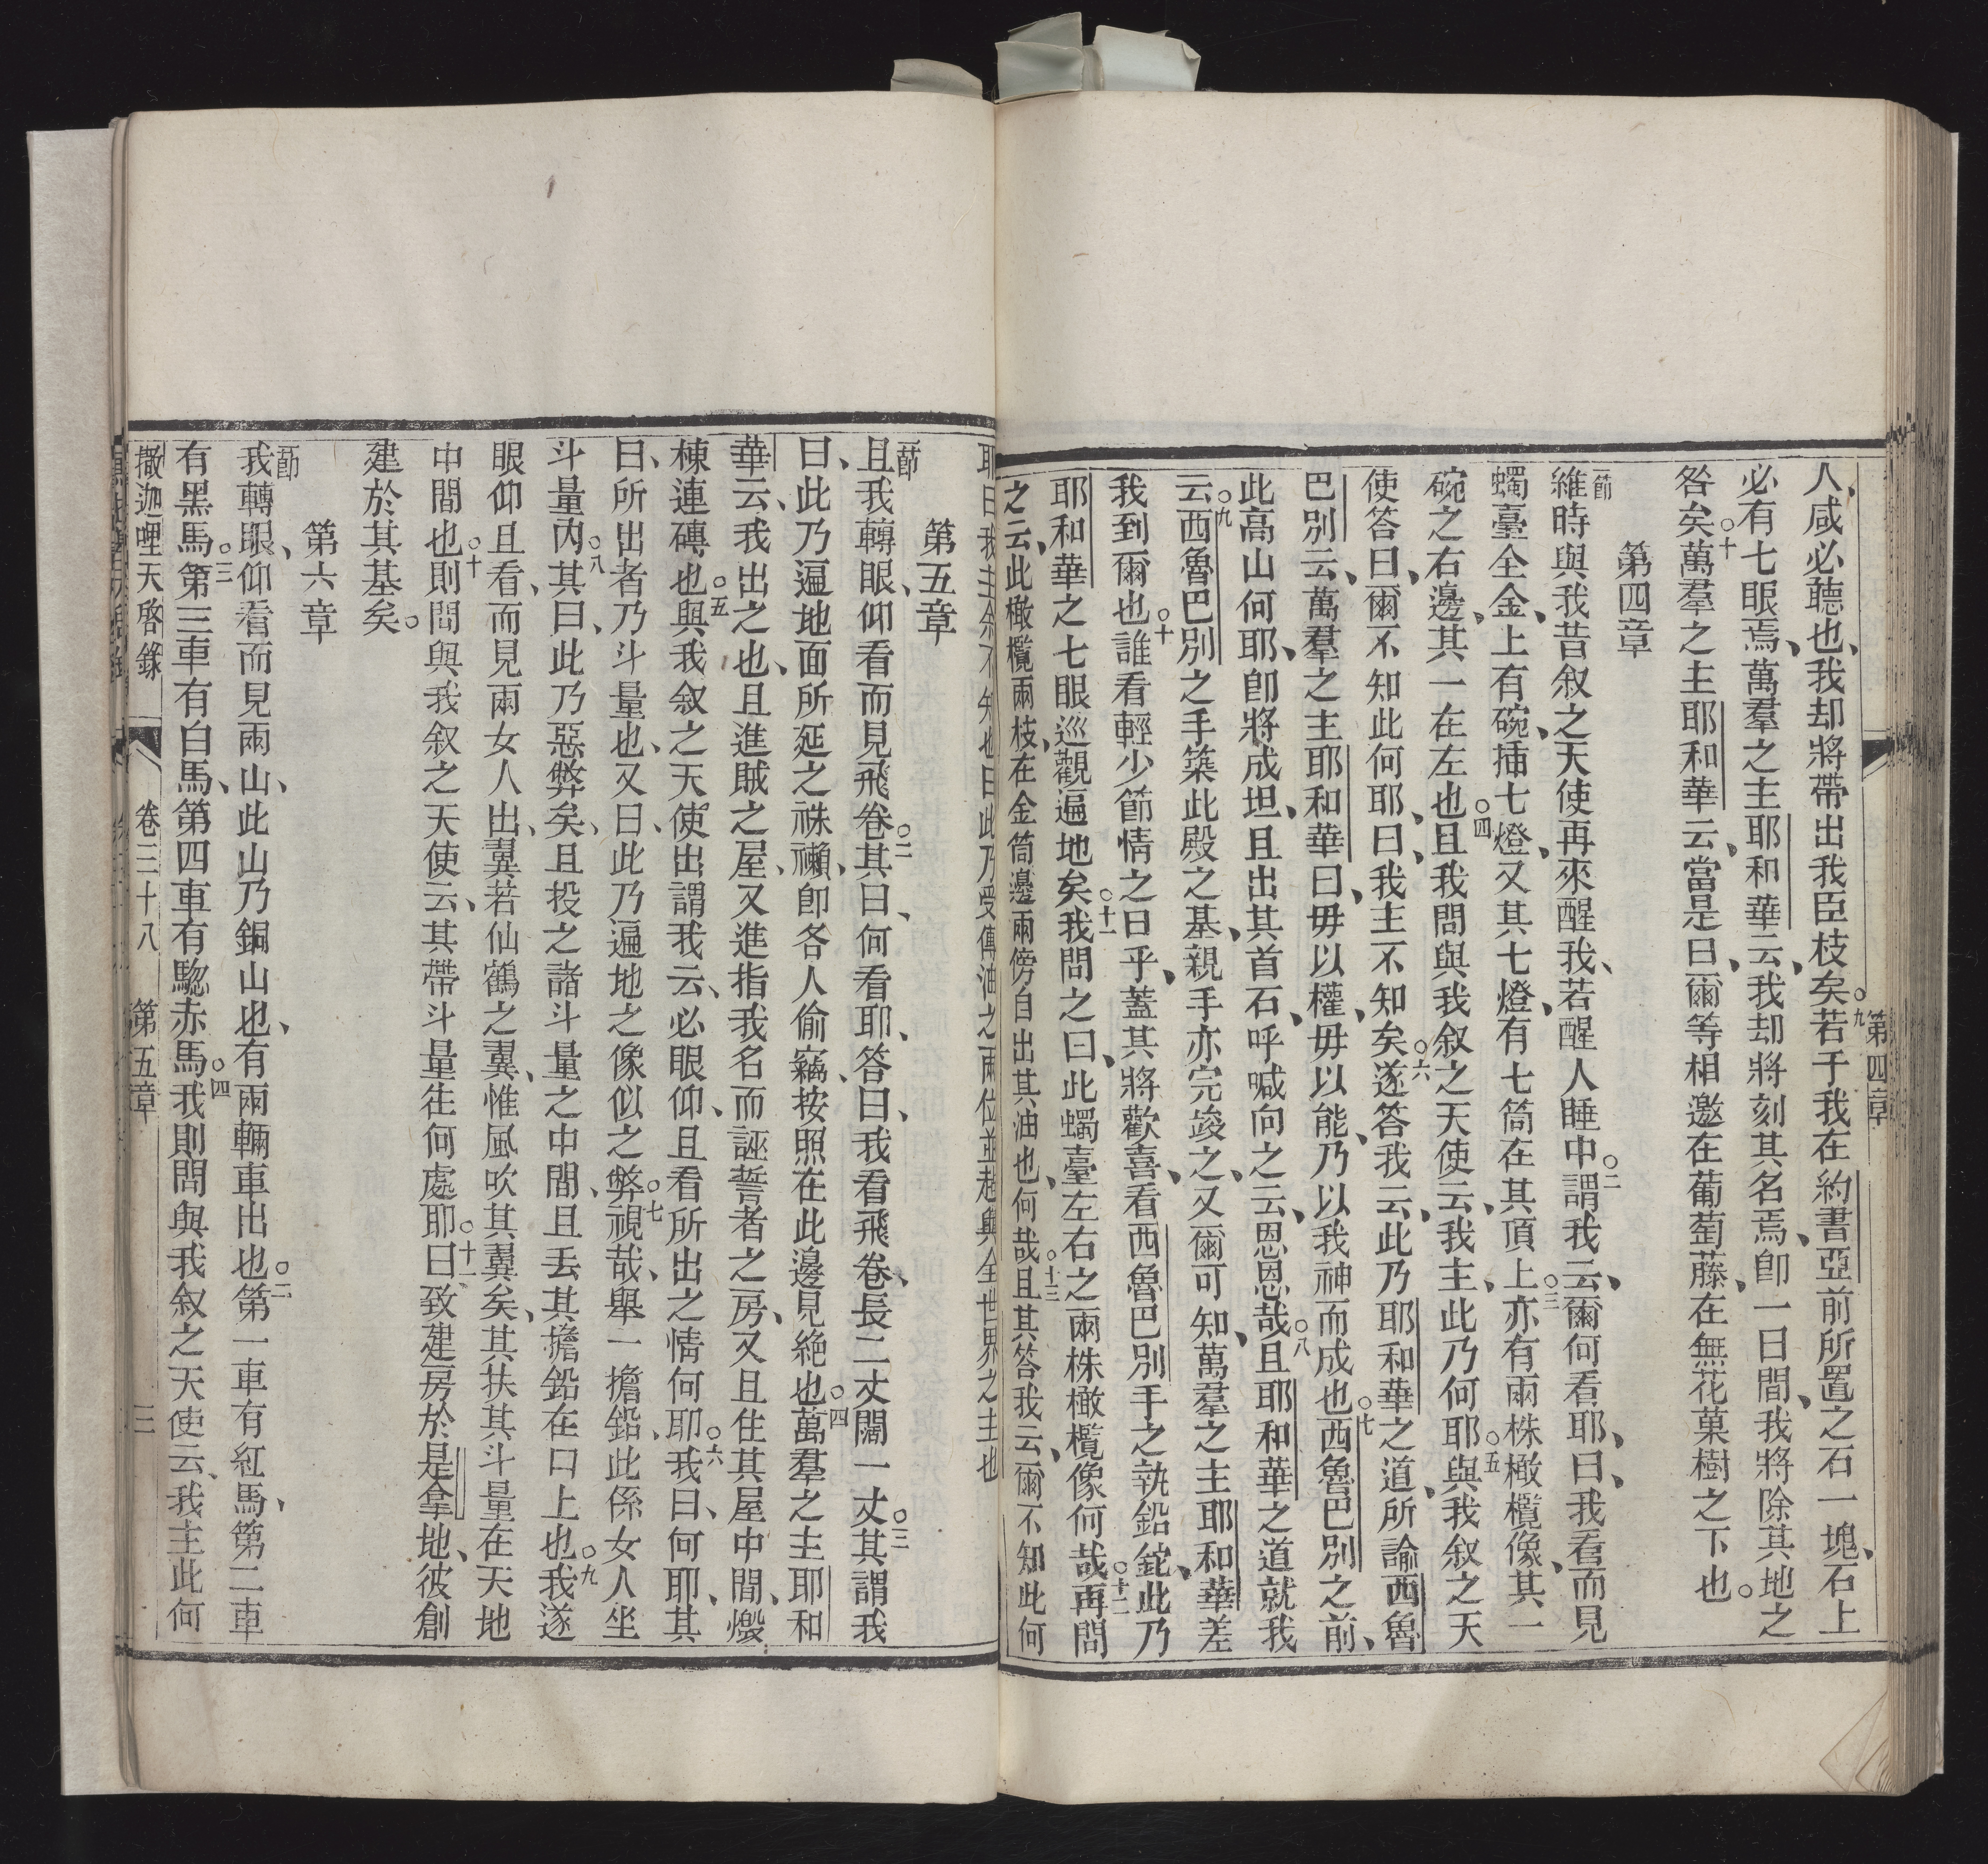 第四章
人、咸必聽也、我却將帶出我臣枝矣。○九若于我在約書亞前所置之石一塊、石上
必有七眼焉、萬羣之主耶和華云、我却將刻其名焉、卽一日間、我將除其地之
咎矣○十萬羣之主耶和華云、當是日、爾等相邀在葡萄藤、在無花菓樹之下也。
第四章
一節維時與我昔叙之天使再來醒我、若醒人睡中○二謂我云、爾何看耶、曰、我看而見
蠋臺全金、上有碗、插七燈、又其七燈、有七筒在其頂上○三亦有兩株橄欖像、其一
碗之右邊、其一在左也○四且我問與我叙之天使云、我主、此乃何耶○五與我叙之天
使答曰、爾不知此何耶、曰、我主不知矣○六遂答我云、此乃耶和華之道、所諭西魯
巴別云、萬羣之主耶和華曰、毋以權、毋以能、乃以我神而成也○七西魯巴別之前、
此高山何耶、卽將成坦、且出其首石、呼喊向之云、恩恩哉○八且耶和華之道就我
云○九西魯巴別之手築此殿之基、親手亦完竣之、又爾可知、萬羣之主耶和華差
我到爾也○十誰看輕少節情之日乎、蓋其將歡喜、看西魯巴別手之執鉛鉈、此乃
耶和華之七眼巡觀遍地矣○十一我問之曰、此蠋臺左右之兩株橄欖像何哉○十二再問
之云、此橄欖兩枝、在金筒邊兩傍自出其油也、何哉○十三且其答我云、爾不知此何
耶曰我主余不知也曰此乃受傳油之兩位並起與全世界之主也
第五章
一節且我轉眼、仰看而見飛卷○二其曰、何看耶、答曰、我看飛卷、長二丈闊一丈○三其謂我
曰、此乃遍地面所延之祩𥜓、卽各人偷竊、按照在此邊見絶也○四萬羣之主耶和
華云、我出之也、且進賊之屋、又進指我名而誣誓者之房、又且住其屋中間、燬
棟連磚也○五與我叙之天使出謂我云、必眼仰、且看所出之情何耶○六我曰、何耶、其
曰、所出者乃斗量也、又曰、此乃遍地之像似之弊○七視哉、舉一擔鉛、此係女人坐
斗量內○八其曰、此乃惡弊矣、且投之諸斗量之中間、且丟其擔鉛在口上也○九我遂
眼仰且看、而見兩女人出、翼若仙鶴之翼、惟風吹其翼矣、其扶其斗量在天地
中間也○十則問與我叙之天使云、其帶斗量徃何處耶○十一曰、致建房於是拿地、彼創
建於其基矣。
第六章
一節我轉眼、仰看而見兩山、此山乃銅山也、有兩輛車出也○二第一車有紅馬、第二車
有黑馬○三第三車有白馬、第四車有騘赤馬○四我則問與我叙之天使云、我主此何
撒迦哩天啓錄　卷三十八　第五章　三